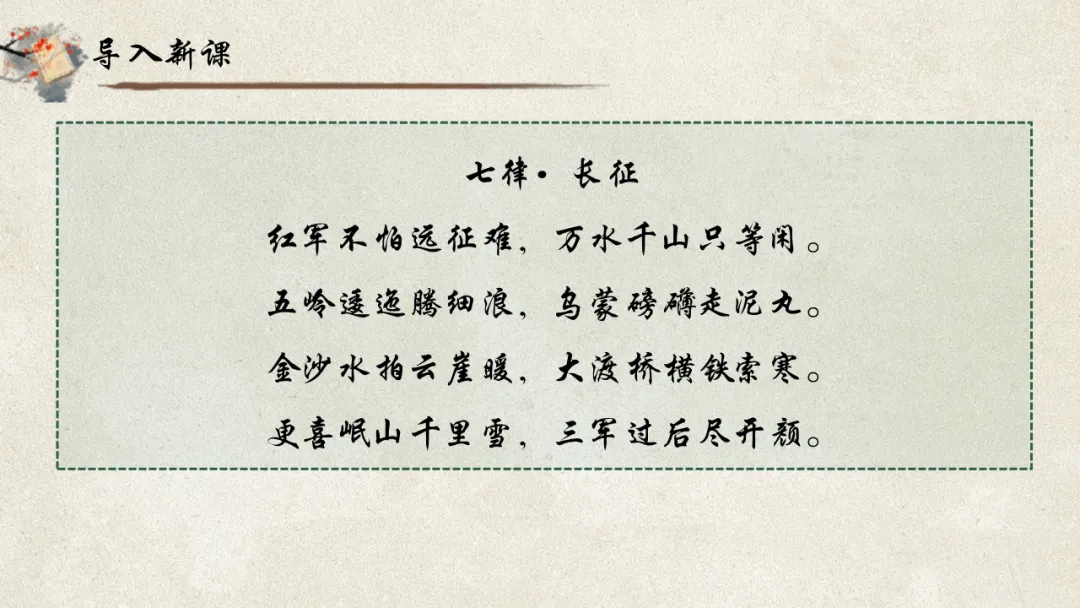 导入新课
七律•长征
红军不怕远征难，万水千山只等闲。
五岭逶迤腾细浪，乌蒙磅礴走泥丸。
金沙水拍云崖暖，大渡桥横铁索寒。
更喜岷山千里雪，三军过后尽开颜。